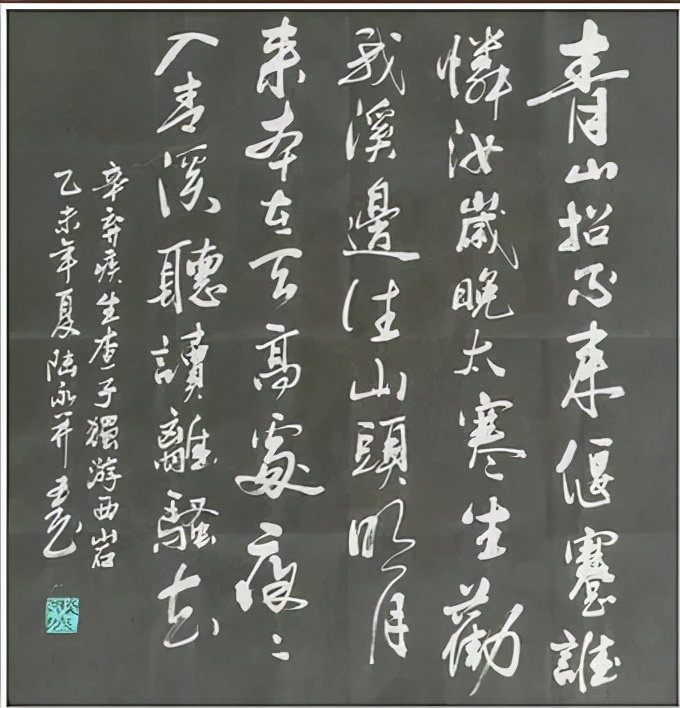 青山招不来偃蹇誰
憐汝歲晚太寒生勸
我溪邊住山頭明月
来本在天高處夜〻
入青溪聽讀離騷去
辛弃疾生查子獨游西岩
乙未年夏陆永書